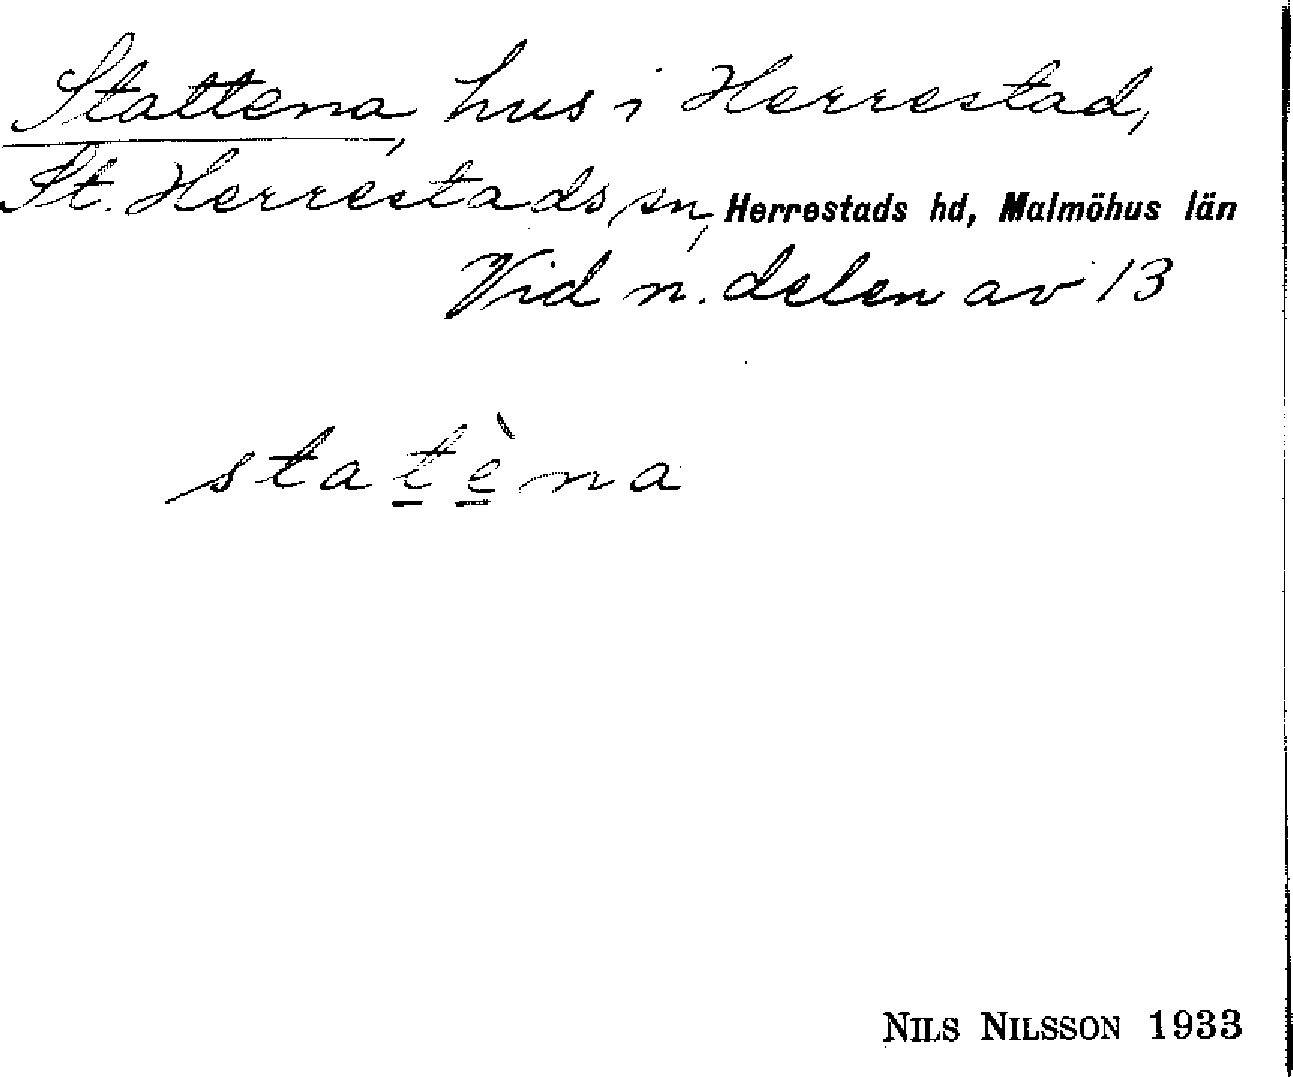 Stattena, hus i Herrestad,
St. Herrestads sn, Herrestads hd, Malmöhus län
Vid n. delen av 13
statèna
NILS NILSSON 1933